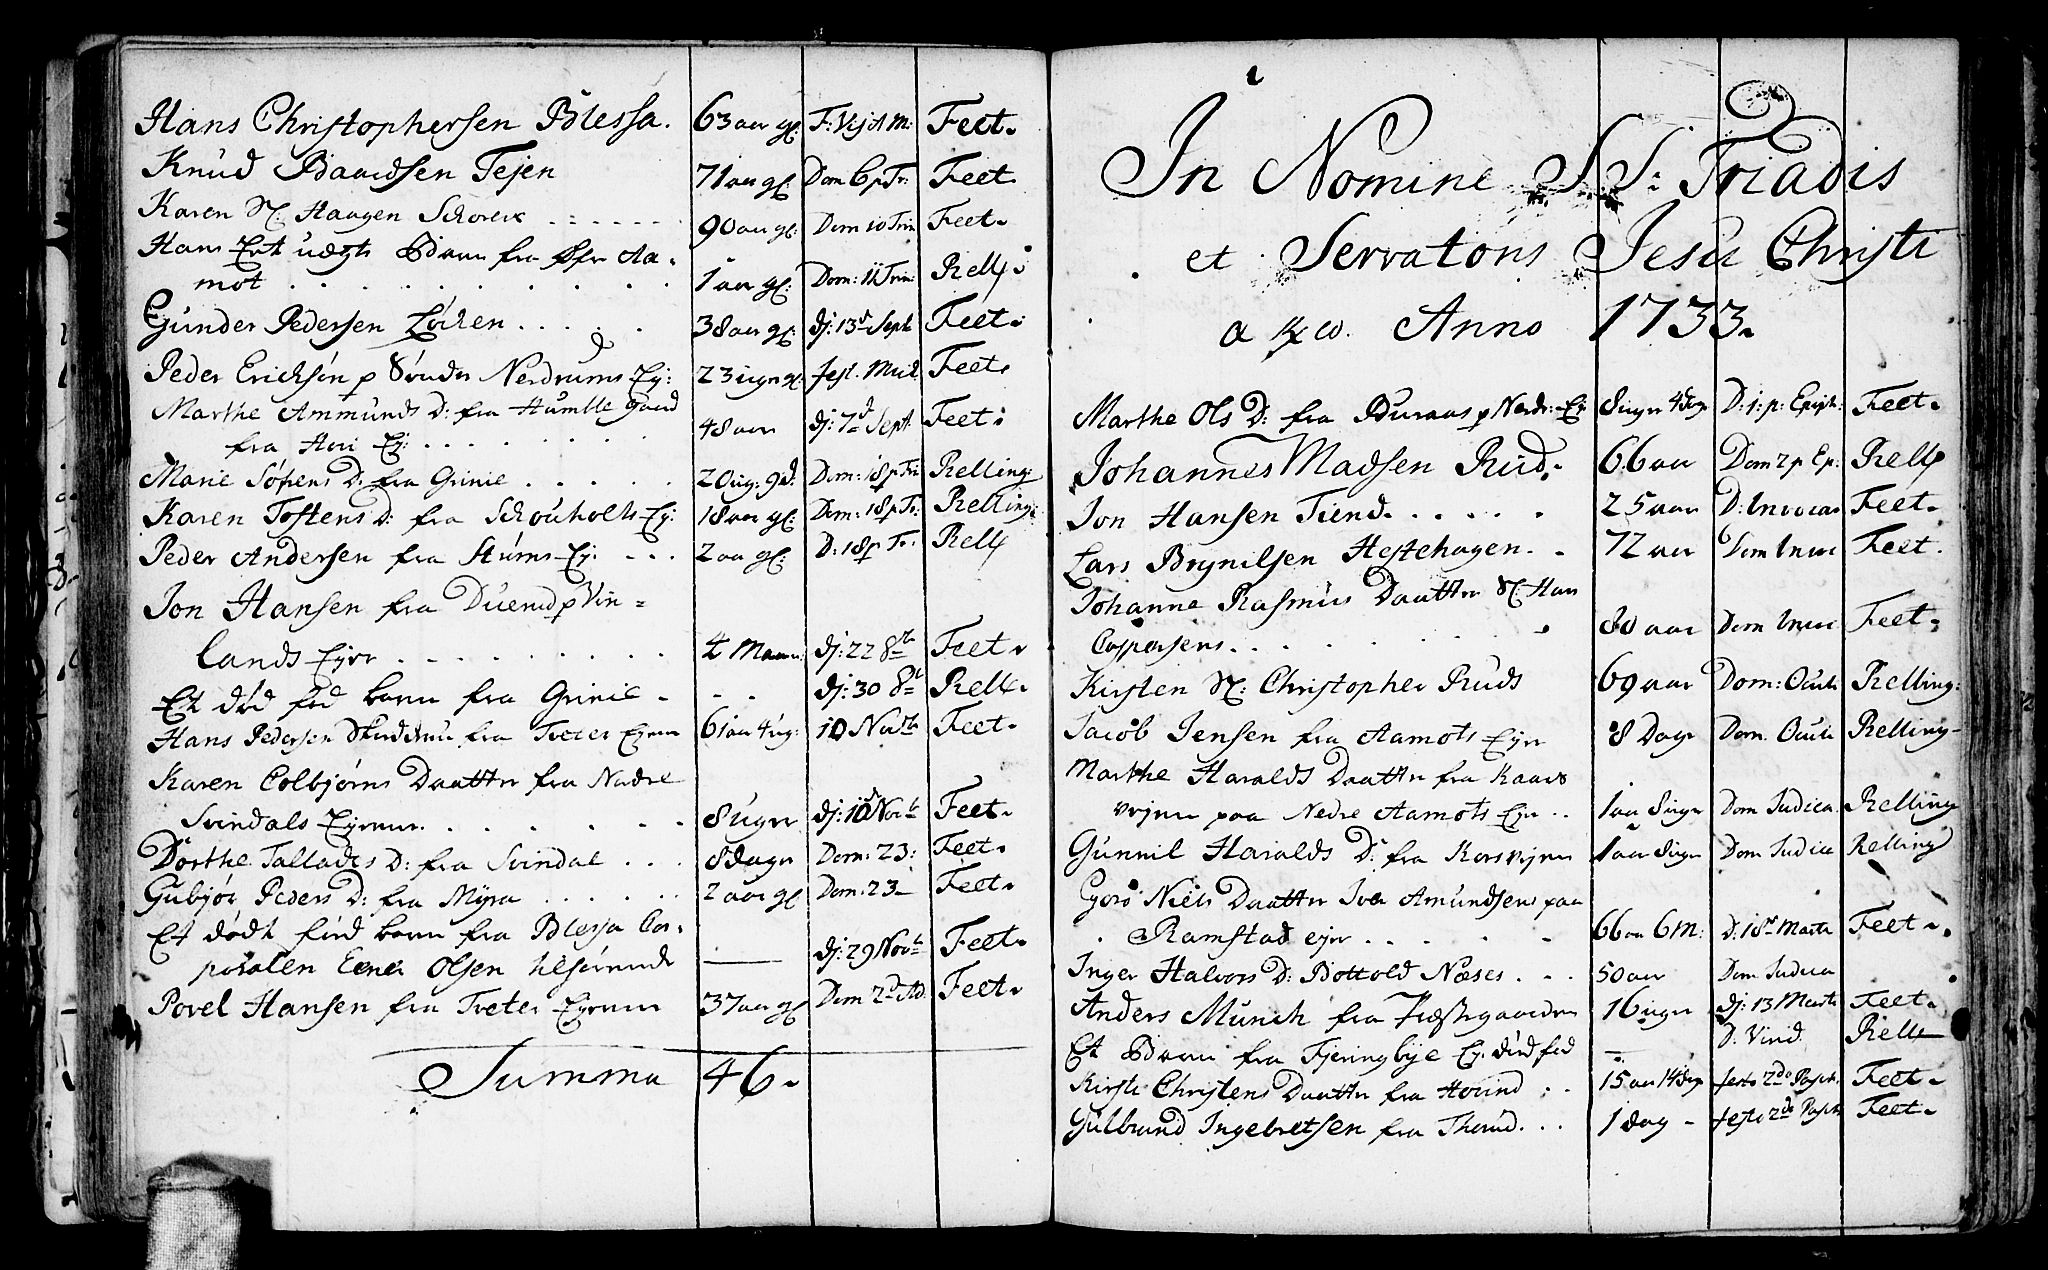 Hans Christophersen Blessa. 63 aar gl: F: Visit M: Feet.
Knud Baardsen Tejen 71 aar gl: Dom 6 p Tr: Feet.
Karen Sl: Haagen Schorers 90 aar gl: Dom 10 Trin Feet.
Hans Erk uægte Barn fra Øfre Aa-
mot 1 aar gl: Dom: 11 Trin: Relf:
Gunder Pedersen Löcken 38 aar gl: dj: 13d Sept Feet:
Peder Ericksön p Sönder Nerdrums Ej: 23 uger gl: fest. Mich Feet.
Marthe Ammunds D: fra Humlle gaard
fra Hovi Ej: 48 aar dj: 7d Sept. Feet:
Marie Sörens D: fra Grinie 20 ug: 9 d. Dom: 18 p Tri Relling:
Karen Tostens D: fra Schouholts Ej: 18 aar gl: Dom: 18 p Tr: Relling:
Peder Andersen fra Stums Ej: 2 aar gl: D: 18 p Tr: Relf
Jon Hansen fra Duerud p Vin=
lands Ejer 4 Maan: dj: 22 8br Feet.
Et död föd barn fra Grinie - - dj: 30 8br Relf.
Hans Pedersen fra Treter Ejerne 61 aar 4 ug: 10 Novbr Feet.
Karen Colbjörns Daatter fra Nedre
Svindals Ejerne. 8 uger dj: 10 Novbr Feet.
Dorthe Tallachs D: fra Svindal 8 dager Dom: 23: Feet.
Gubjör Peders D: fra Myra 2 aar gl Dom: 23 Feet.
Et dödt föd barn fra Blessa Cor-
poralen Ener Olsen tilhörende dj: 29 Novbr Feet.
Povel Hansen fra Treter Ejerne 37 aar gl Dom 2d Ad. Feet.
Summa 46.
In Nomine S S: Triadis
et Servatoris Jesu Christi
α & ω. Anno 1733.
Marthe Ols D: fra Buraas p Nerdr: Ej 8 uger 4 dag D: 1: p: Epiph: Feet.
Johannes Madsen Rud. 66 aar Dom 2 p Ep: Relf
Jon Hansen Tiend 25 aar D: Invocav Feet.
Lars Brynilsen Hestehagen 72 aar Dom Invoc Feet.
Johanne Rasmus Daatter Sl: Hans
Caspersens 80 aar Dom Invoc Feet.
Kirsten Sl: Christopher Ruds 69 aar Dom: Oculi Relling:
Jacob Jensen fra Aamots Ejer 8 Dage Dom. Oculi Relling
Marthe Haralds Daatter fra Kaars
vejen paa Nedre Aamots Ejer 1 aar 8 uger Dom Judica Relling
Gunnil Haralds D: fra Korsvejen 1 aar 8 uger Dom Judica Relling
Goro Niels Daatter Iver Amundsens paa
Ramstad ejer 66 aar 6 M: D: 18 Marti Feet.
Inger Halvors D: Bottold Næses 50 aar Dom Judica
Anders Munch fra Præstegaarden 16 uger dj: 13 Marti Feet.
Et Barn fra Fjeringbye Ej: död föd D: Virid Relf
Kirsti Christens Daatter fra Hovind 15 aar 14 dag festo 2do Pasch: Feet.
Gulbrand Ingebretsen fra Thorud 1 dag festo 2do Pasch Feet.